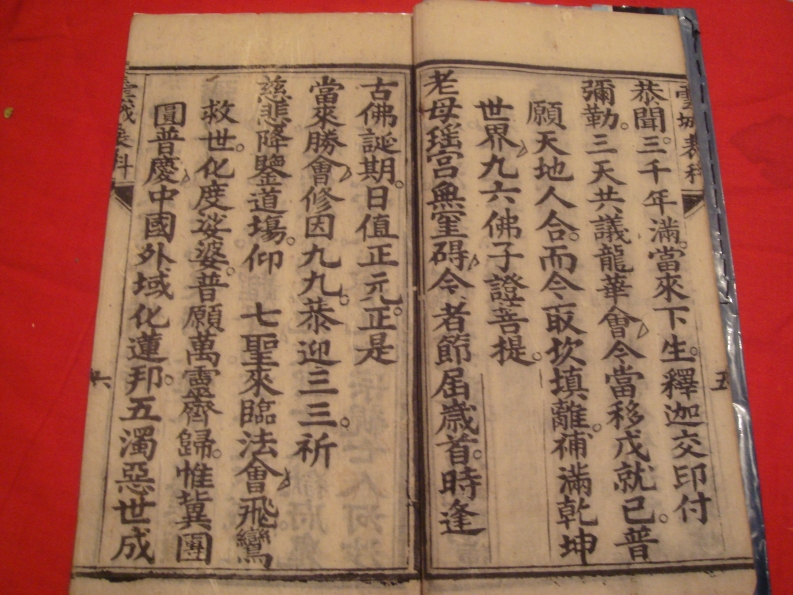 恭聞。三千年滿。當來下生。釋迦交印付
彌勒。三天共議龍華會。今當移戊就己。普
願天地人合。而今取坎填離。補滿乾坤
世界。九六佛子證菩提。
老母瑤宮無罣碍。今者節屆歲首。時逢
五
古佛誕期。日值正元。正是
當來勝會。修因九九。恭迎三三。祈
慈悲降鑒道塲。仰 七聖來臨法會。飛鸞
救世。化度娑婆。普願萬靈齊歸。惟冀團
圓普慶。中國外域化蓮邦。五濁惡世成
六